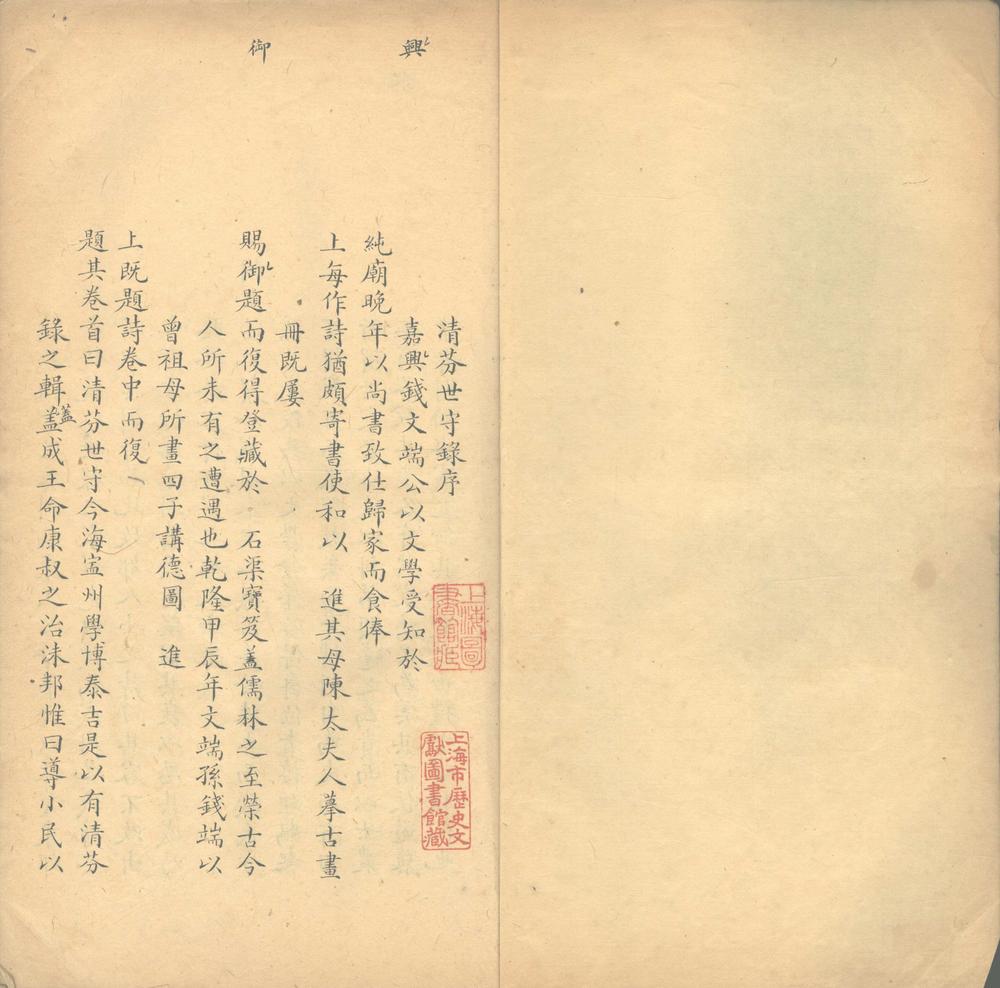 興
御
清芬世守錄序
嘉興錢文端公以文學受知於
純廟晚年以尚書致仕歸家而食俸
上每作詩猶頗寄書使和以 進其母陳太夫人摹古畫
冊既屢
賜御題而復得登藏於 石渠寶笈盖儒林之至榮古今
人所未有之遭遇也乾隆甲辰年文端孫錢端以
曾祖母所畫四子講德圖 進
上既題詩卷中而復
題其卷首曰清芬世守今海寍州學博泰吉是以有清芬
錄之輯盖成王命康叔之治沬邦惟曰導小民以
蓋
上海圖
書館
上海市歷史文
獻圖書館藏